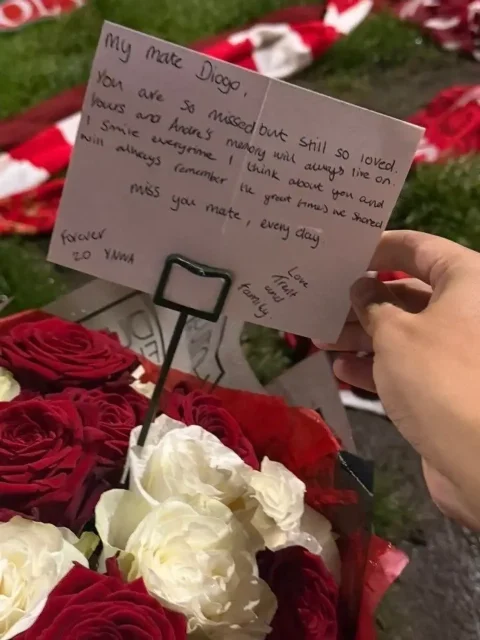 My mate Diogo,
You are so missed but still so loved.
Yours and Andre's memory will always live on.
I smile everytime I think about you and
will always remember the great times we shared
miss you mate, every day
Forever
20 YNWA
Love
Trent
and
family